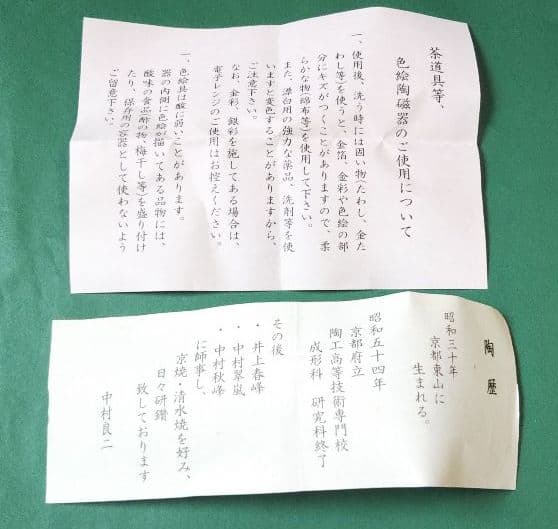 茶道具等、
色絵陶磁器のご使用について
一、使用後、洗う時には固い物(たわし、金た
わし等)を使うと、金箔、金彩や色絵の部
分にキズがつくことがありますので、柔
らかな物(綿布等)を使用して下さい。
また、漂白用の強力な薬品、洗剤等を使
いますと変色することがありますから、
ご注意下さい。
なお、金彩、銀彩を施してある場合は、
電子レンジのご使用はお控えください。
一、色絵具は酸に弱いことがあります。
器の内側に色絵が描いてある品物には、
酸味の食品(酢の物、梅干し等)を盛り付け
たり、保存用の容器として使わないよう
ご留意下さい。
陶歴
昭和三十年
京都東山に
生まれる。
昭和五十四年
京都府立
陶工高等技術専門校
成形科 研究科終了
その後
・井上春峰
・中村翠嵐
・中村秋峰
に師事し、
京焼・清水焼を好み、
日々研鑽
致しております
中村良二